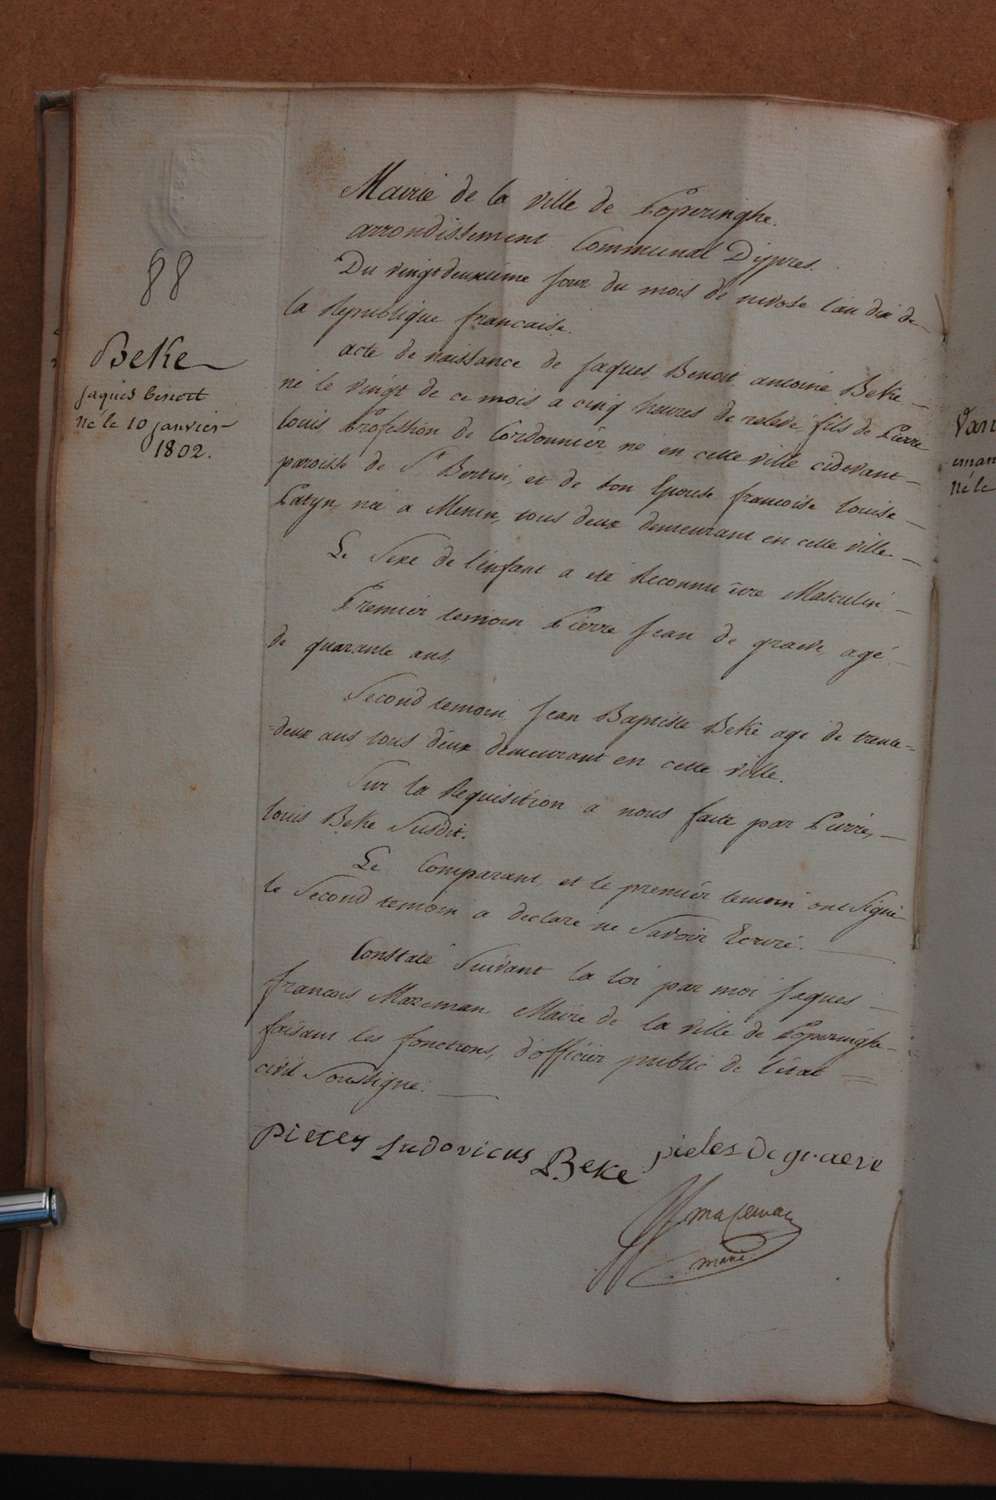 88
Beke
Jaques benoit
né le 10 janvier
1802.
Mairie de la ville de Poperinghe.
arrondissement Communal Dijpres.
Du vingt deuxieme jour du mois de nivose l'an dix de
la Republique francaise.
acte de naissance de Jaques Benoit antoine Beke
né le vingt de ce mois a cinq heures de relevé, fils de Pierre
Louis Profession de Cordonnier, né en cette ville cidevant
paroisse de St Bertin, et de son Epouse francoise Louise
Patyn, née a Menin, tous deux demeurant en cette ville
Le Sexe de l'enfant a eté Reconnu être Masculin
Premier temoin Pierre Jean de graeve, agé
de quarante ans.
Second temoin, Jean Baptiste Beke agé de trente=
=deux ans tous deux demeurant en cette ville.
Sur la Requisition a nous faite par Pierre,
Louis Beke Susdit.
Le Comparant, et le premier temoin ont signé
le Second temoin a declaré ne Savoir Ecrire.
Constaté Suivant la loi par moi Jaques
francois Mazeman Maire de la ville de Poperinghe
faisant les fonctions, d'officier public de l'état
civil Soussigné.
pieter Ludovicus Beke
pieter De graeve
Mazeman
maire
Van
eman
né le